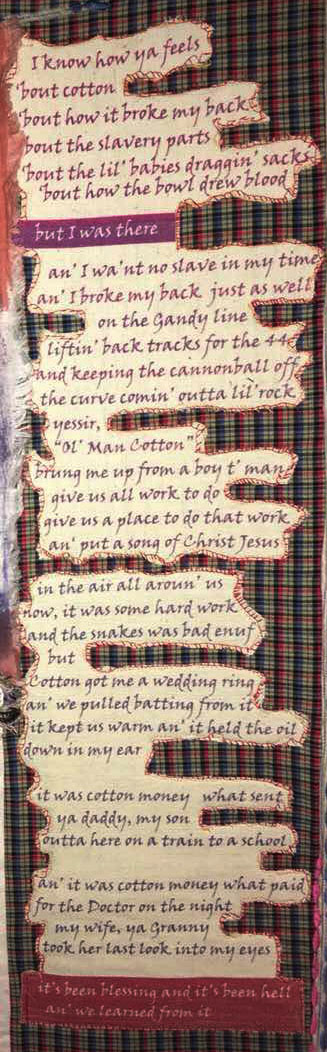 I know how ya feels
'bout cotton
'bout how it broke my back
'bout the slavery parts
'bout the lil' babies draggin' sacks
'bout how the bowl drew blood
but I was there
an' I wa'nt no slave in my time
an' I broke my back just as well
on the Gandy line
liftin' back tracks for the 44
and keeping the cannonball off
the curve comin' outta lil' rock
yessir,
"Ol' Man Cotton"
brung me up from a boy t' man
give us all work to do
give us a place to do that work
an' put a song of Christ Jesus
in the air all aroun' us
now, it was some hard work
and the snakes was bad enuf
but
Cotton got me a wedding ring
an' we pulled batting from it
it kept us warm an' it held the oil
down in my ear
it was cotton money what sent
ya daddy, my son
outta here on a train to a school
an' it was cotton money what paid
for the Doctor on the night
my wife, ya Granny
took her last look into my eyes
it's been blessing and it's been hell
an' we learned from it